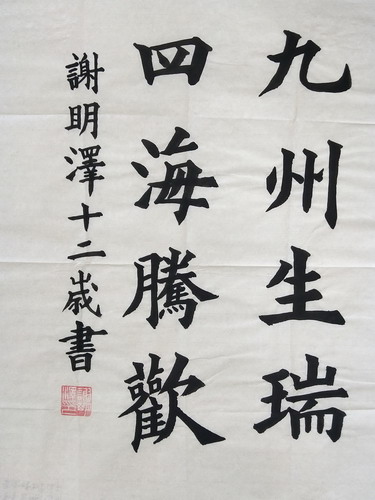 九州生瑞
四海騰歡
謝明澤十二歲書